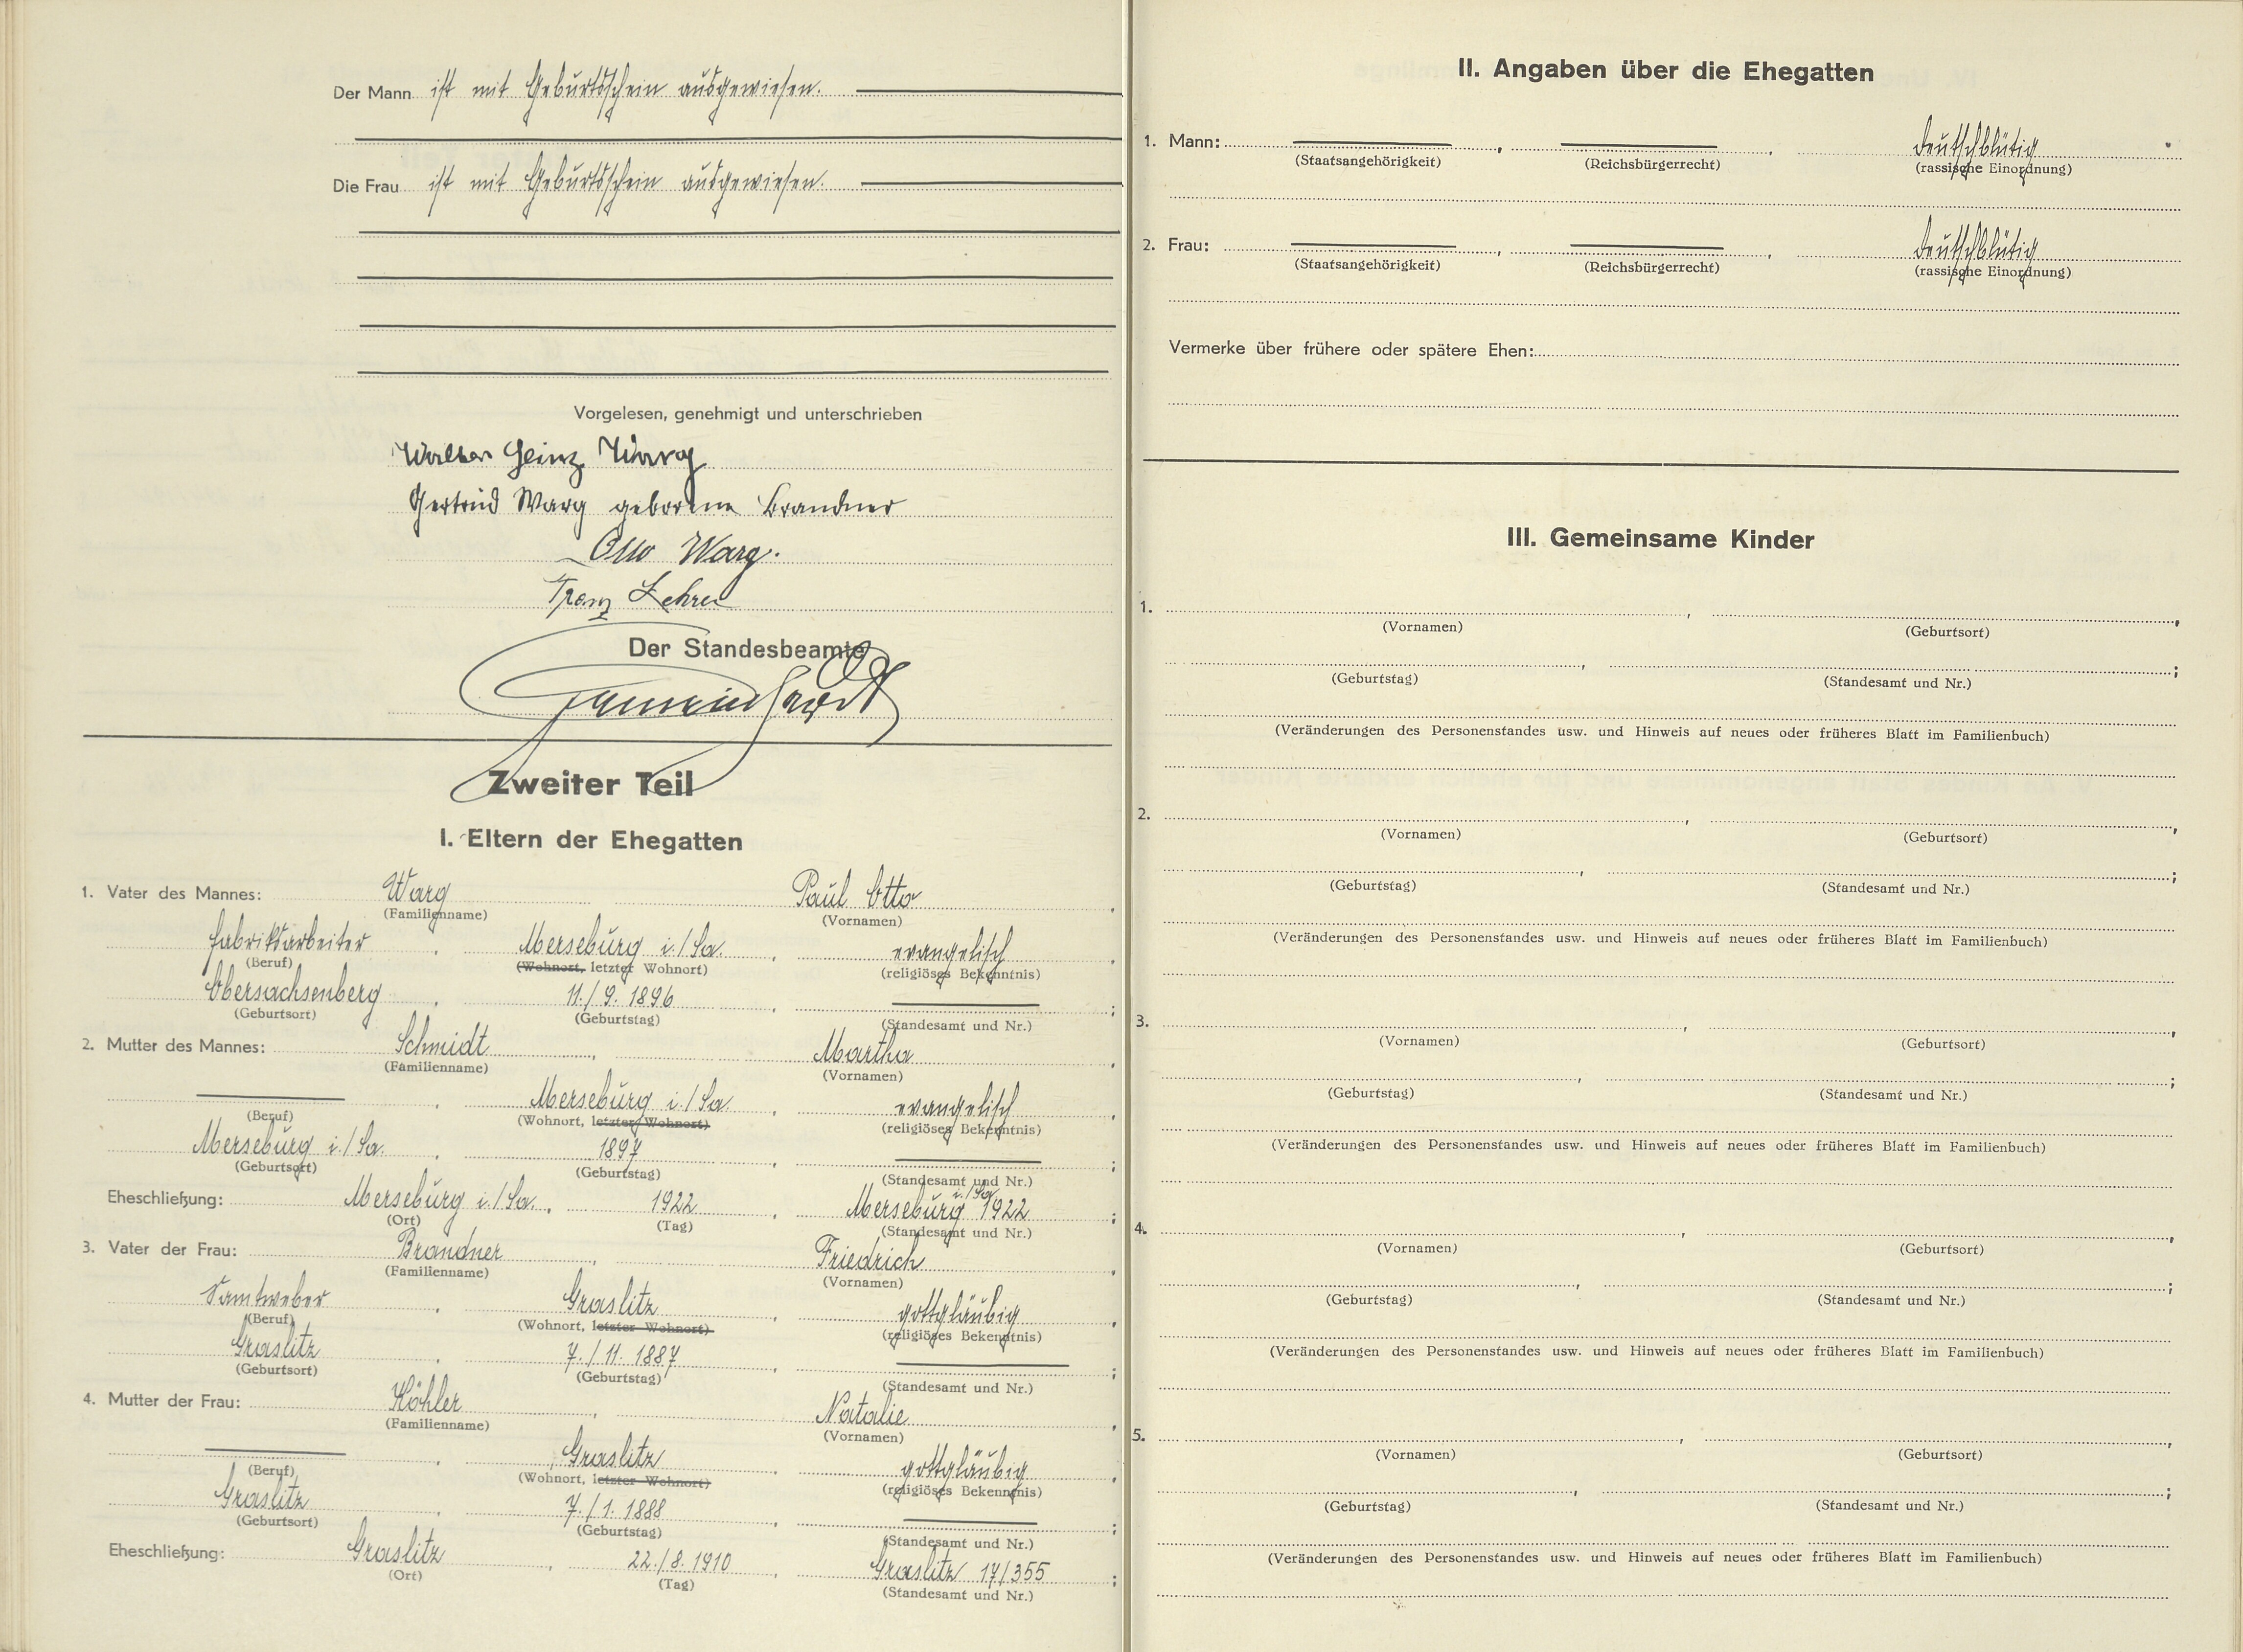 Der Mann ist mit Geburtsschein ausgewiesen.
Die Frau ist mit Geburtsschein ausgewiesen.
Vorgelesen, genehmigt und unterschrieben
Walter Heinz Warg
Gertrud Warg geborene Brandner
Otto Warg.
Franz
Der Standesbeamte
Zweiter Teil
I. Eltern der Ehegatten
1. Vater des Mannes: Warg Paul Otto,
(Familienname) (Vornamen)
Fabriksarbeiter, Merseburg i./Sa., evangelisch,
(Beruf) (Wohnort, letzter Wohnort) (religiöses Bekenntnis)
Obersachsenberg, 11./9. 1896,;
(Geburtsort) (Geburtstag) (Standesamt und Nr.)
2. Mutter des Mannes: Schmidt, Martha,
(Familienname) (Vornamen)
, Merseburg i./Sa., evangelisch,
(Beruf) (Wohnort, letzter Wohnort) (religiöses Bekenntnis)
Merseburg i./Sa., 1897,;
(Geburtsort) (Geburtstag) (Standesamt und Nr.)
Eheschließung: Merseburg i./Sa., 1922, Merseburg i./Sa. 1922;
(Ort) (Tag) (Standesamt und Nr.)
3. Vater der Frau: Brandner, Friedrich,
(Familienname) (Vornamen)
Samtweber, Graslitz, gottgläubig,
(Beruf) (Wohnort, letzter Wohnort) (religiöses Bekenntnis)
Graslitz, 7./11. 1887,;
(Geburtsort) (Geburtstag) (Standesamt und Nr.)
4. Mutter der Frau: Köhler, Natalie,
(Familienname) (Vornamen)
, Graslitz, gottgläubig,
(Beruf) (Wohnort, letzter Wohnort) (religiöses Bekenntnis)
Graslitz, 7./1. 1888,;
(Geburtsort) (Geburtstag) (Standesamt und Nr.)
Eheschließung: Graslitz, 22./8. 1910, Graslitz 17/355;
(Ort) (Tag) (Standesamt und Nr.)
II. Angaben über die Ehegatten
1. Mann:,, deutschblütig
(Staatsangehörigkeit) (Reichsbürgerrecht) (rassische Einordnung)
2. Frau:,, deutschblütig
(Staatsangehörigkeit) (Reichsbürgerrecht) (rassische Einordnung)
Vermerke über frühere oder spätere Ehen:
III. Gemeinsame Kinder
1.,,
(Vornamen) (Geburtsort)
,;
(Geburtstag) (Standesamt und Nr.)
(Veränderungen des Personenstandes usw. und Hinweis auf neues oder früheres Blatt im Familienbuch)
2.,,
(Vornamen) (Geburtsort)
,;
(Geburtstag) (Standesamt und Nr.)
(Veränderungen des Personenstandes usw. und Hinweis auf neues oder früheres Blatt im Familienbuch)
3.,,
(Vornamen) (Geburtsort)
,;
(Geburtstag) (Standesamt und Nr.)
(Veränderungen des Personenstandes usw. und Hinweis auf neues oder früheres Blatt im Familienbuch)
4.,,
(Vornamen) (Geburtsort)
,;
(Geburtstag) (Standesamt und Nr.)
(Veränderungen des Personenstandes usw. und Hinweis auf neues oder früheres Blatt im Familienbuch)
5.,,
(Vornamen) (Geburtsort)
,;
(Geburtstag) (Standesamt und Nr.)
(Veränderungen des Personenstandes usw. und Hinweis auf neues oder früheres Blatt im Familienbuch)